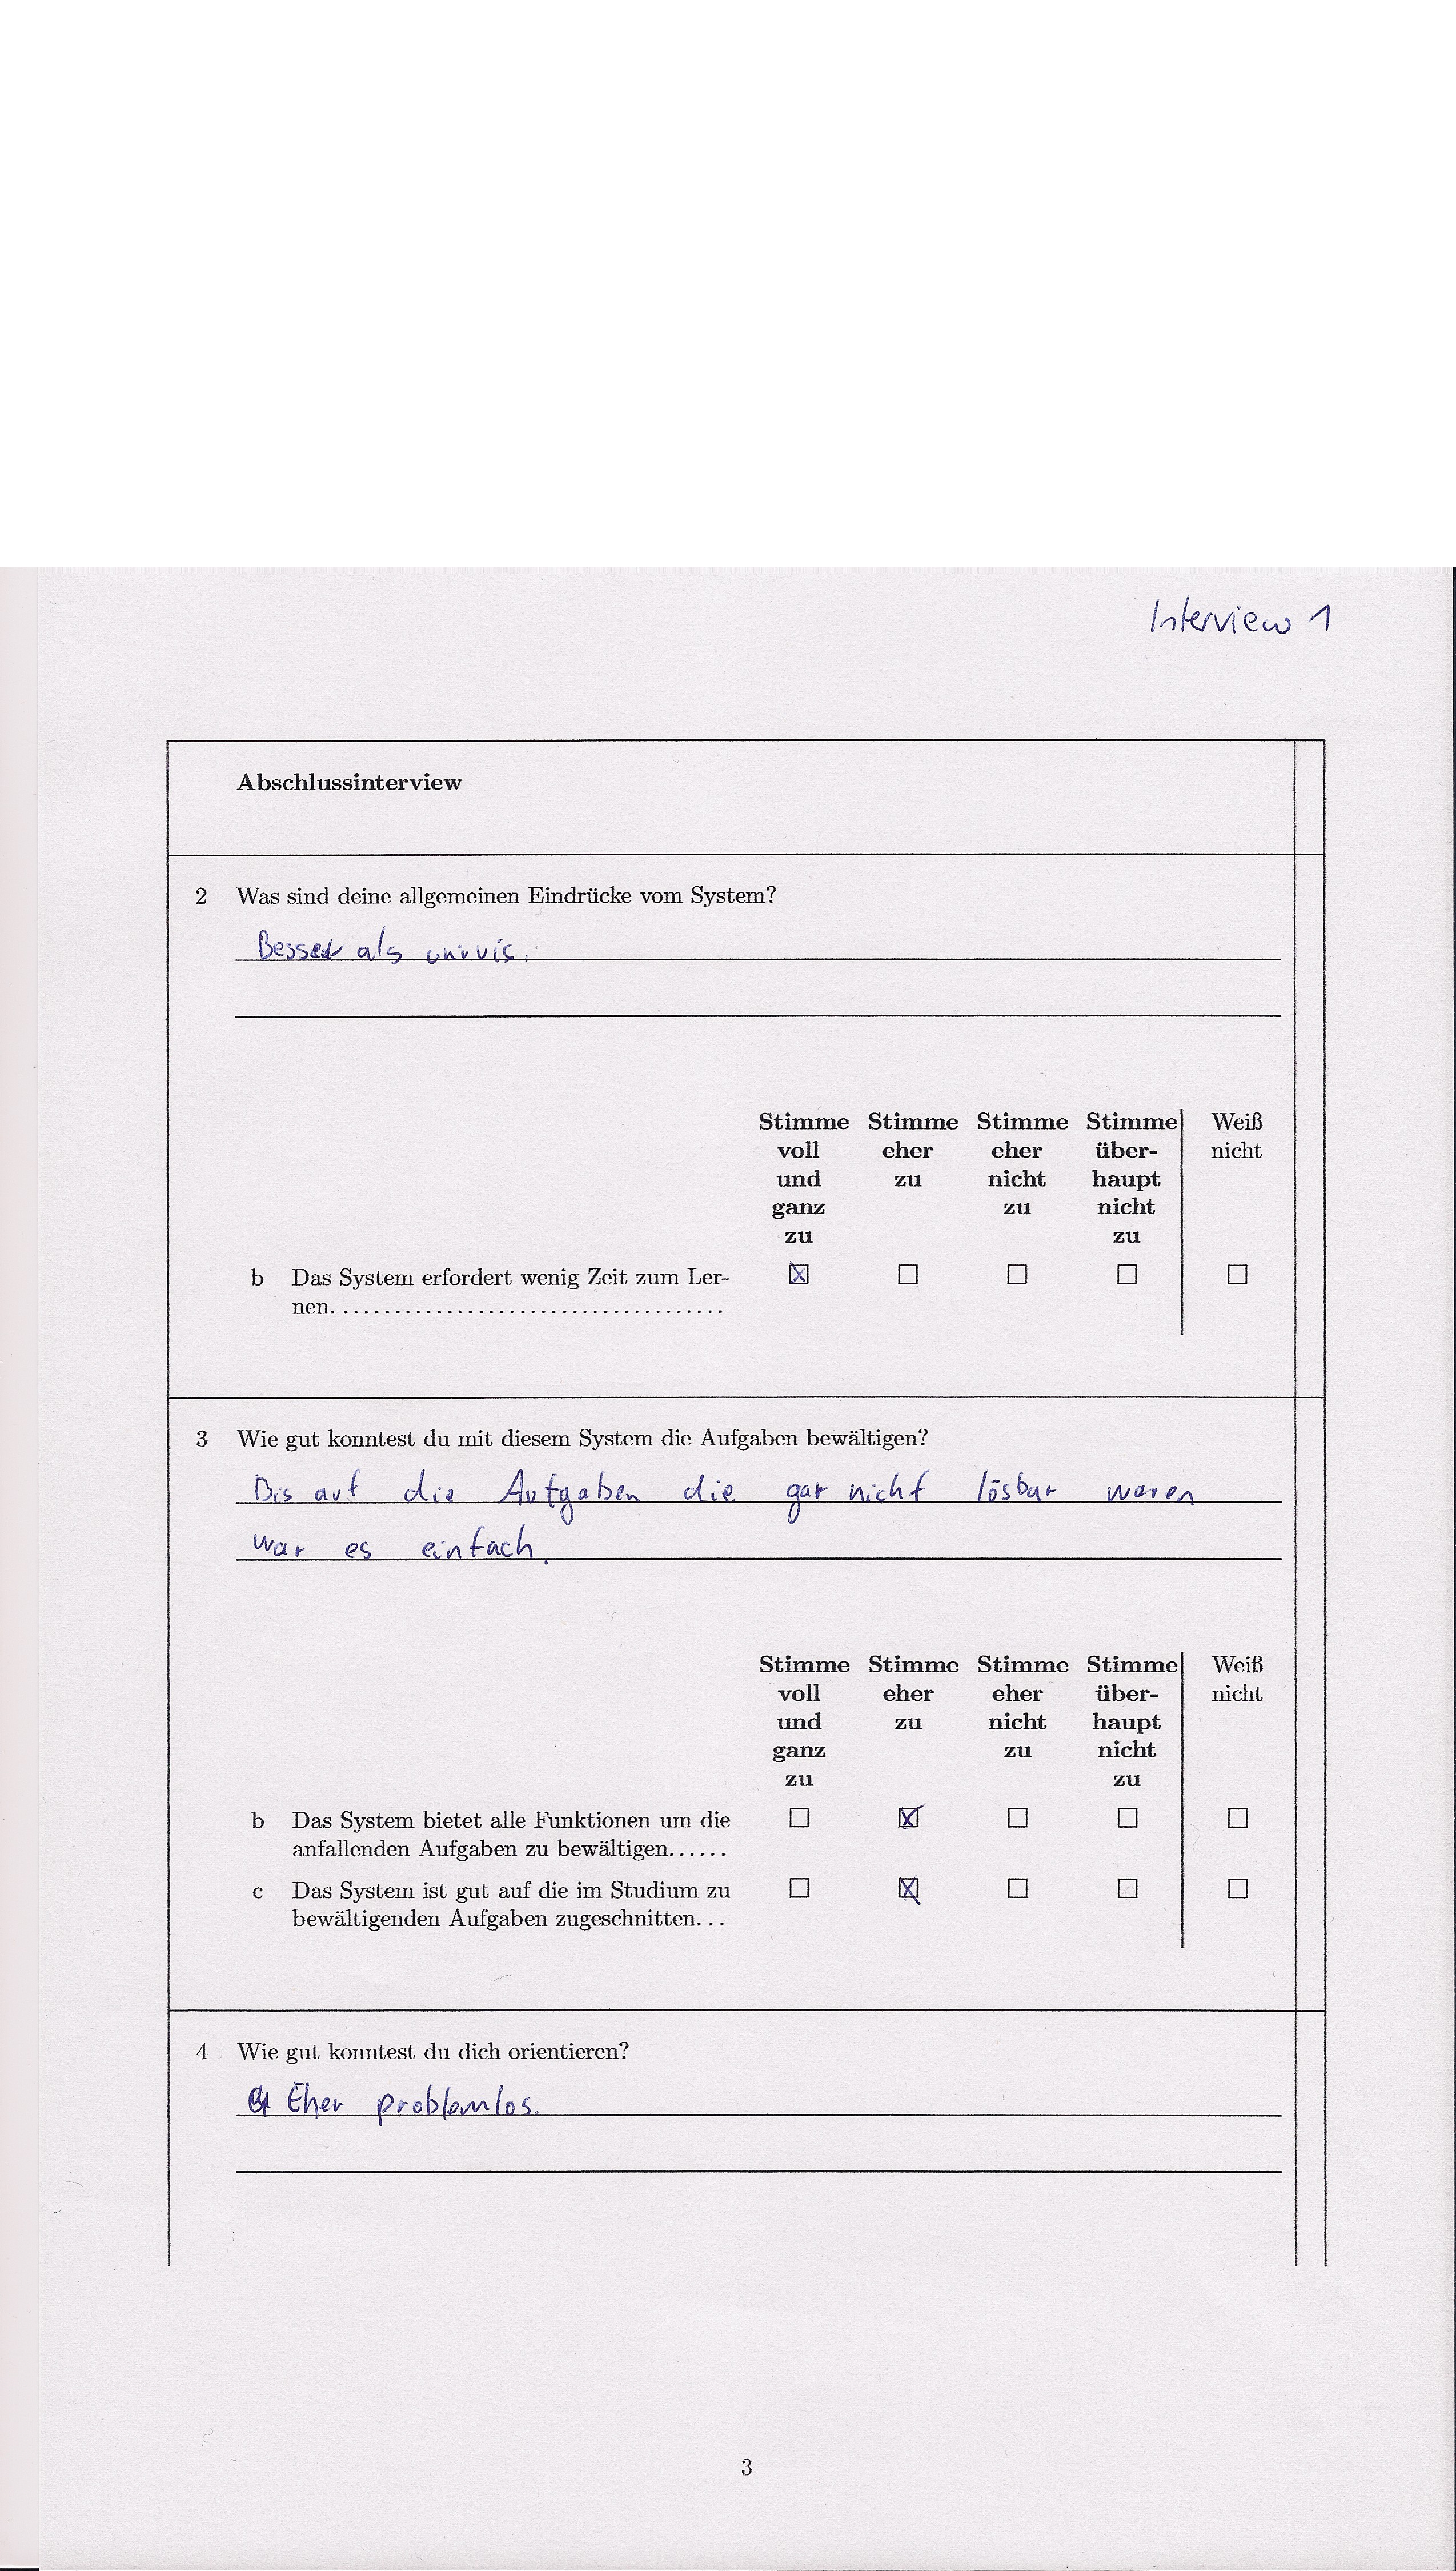 Interview 1
Abschlussinterview
2 Was sind deine allgemeinen Eindrücke vom System?
Besser als univis.
Stimme voll und ganz zu
Stimme eher zu
Stimme eher nicht zu
Stimme über-haupt nicht zu
Weiß nicht
b Das System erfordert wenig Zeit zum Ler-
nen. . . . . . . . . . . . . . . . . . . . . . . . . . . . . . . . . . . . .
3 Wie gut konntest du mit diesem System die Aufgaben bewältigen?
Bis auf die Aufgaben die gar nicht lösbar waren
war es einfach.
Stimme voll und ganz zu
Stimme eher zu
Stimme eher nicht zu
Stimme über-haupt nicht zu
Weiß nicht
b Das System bietet alle Funktionen um die
anfallenden Aufgaben zu bewältigen......
c Das System ist gut auf die im Studium zu
bewältigenden Aufgaben zugeschnitten...
4 Wie gut konntest du dich orientieren?
Eher problemlos.
3